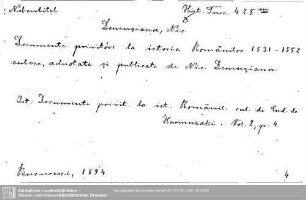 Nebentitel
Hist. Turc. 428
Densusianu, Nic.
Documente privitóre la istoria Românilor 1531-1552
culese, adnotate și publicate de Nic. Densusianu
Tit. Documente privit. la ist. Românil. cul. de Eud. de
Hurmuzaki. Vol. 2, p. 4.
Bucuresci, 1894
4
Sächsische Landesbibliothek -
Staats- und Universitätsbibliothek Dresden